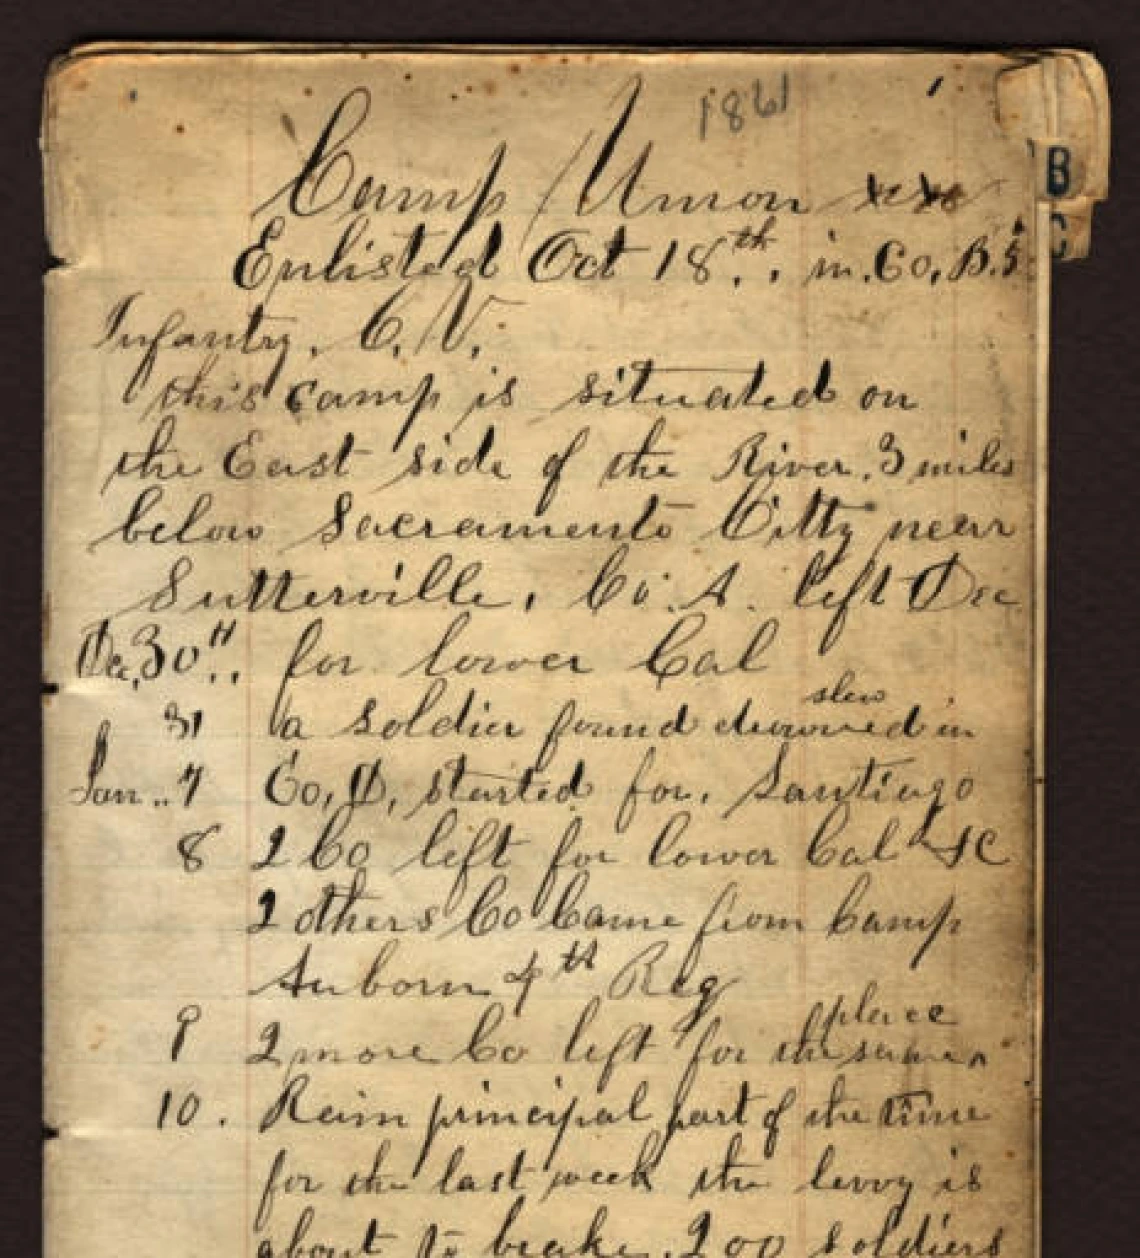 1861
Camp Union
Enlisted Oct 18th.. in. Co, B. 5
Infantry, C. V.
this camp is situated on
the East side of the River. 3 miles
below Sacramento Citty near
Sutterville, Co. A. left Dec
Dec, 30th.. for lower Cal
slew
31 a soldier found drowned in
Jan.. 7 Co, D, started for. Santiago
8 2 Co left for lower Cal &C
2 others Co Came from Camp
Auborn 4th Reg
place
9 2 more Co left for the same
10. Rain principal part of the time
for the last week the levvy is
about to brake. 200 soldiers
B
C